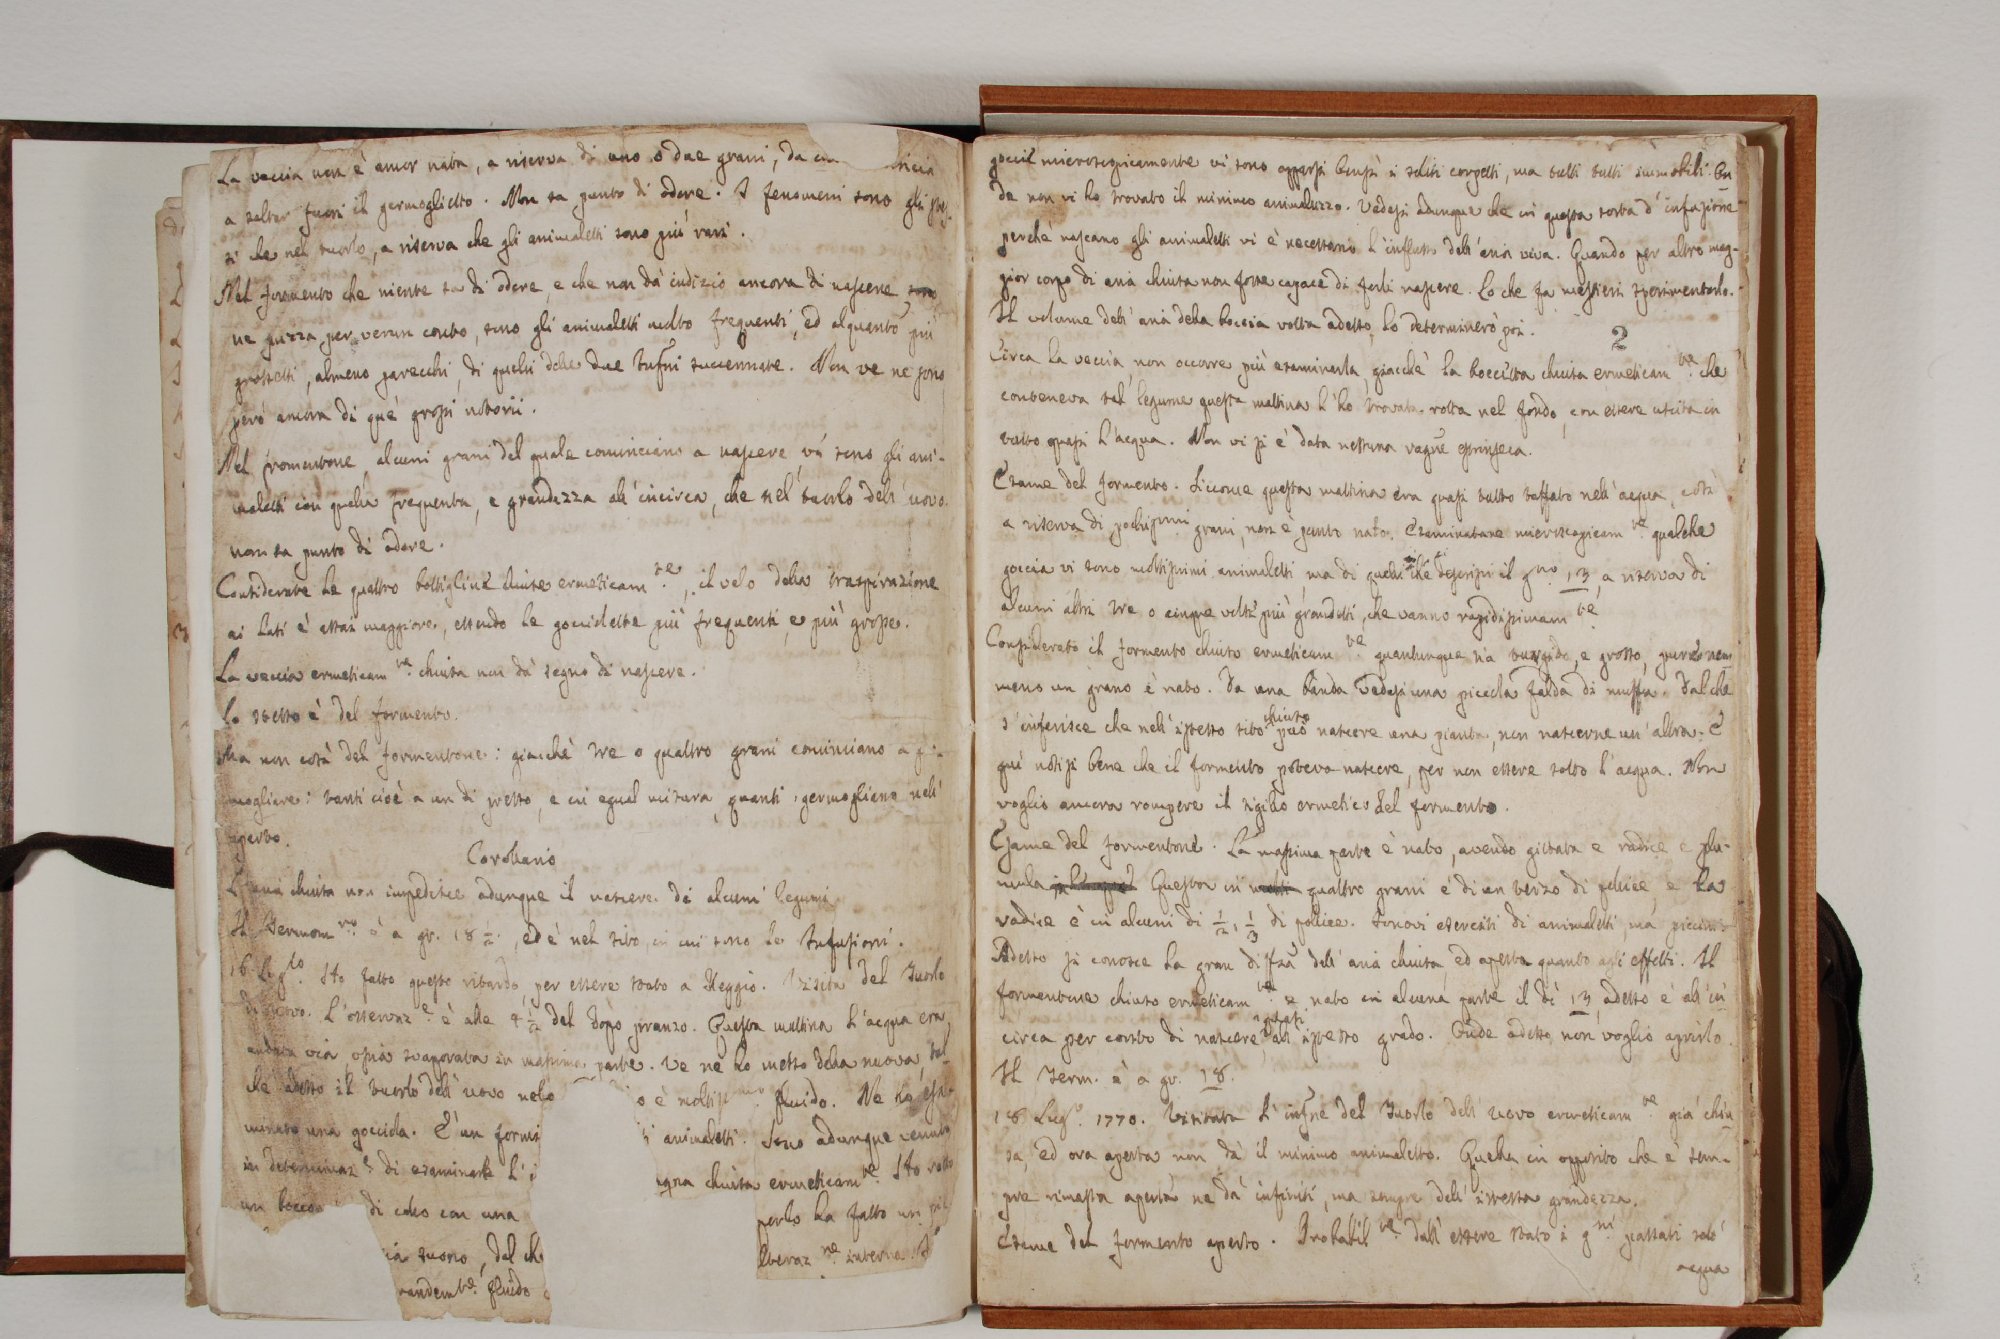 La veccia non è ancor nata, a riserva di uno o due grani, da cui
a saltar fuori il germoglietto. Non sa punto di odore. I fenomeni sono gli stes-
si che nel tuorlo, a riserva che gli animaletti sono più rari.
Nel formento che niente sa di odore, e che non dà indizio ancora di nascere
ne puzza per verun conto, sono gli animaletti molto frequenti, ed alquanto più
grossetti, almeno parecchi, di quelli delle due Infusni succennate. Non ve ne sono
però ancora di què grossi notorii.
Nel fromentone, alcuni grani del quale cominciano a nascere, vi sono gli ani-
maletti con quella frequenta, e grandezza all'incirca, che nel tuorlo dell'uovo.
non sa punto di odore.
Considerate le quattro bottigline chiuse ermeticamte, il velo della traspirazione
ai lati è assai maggiore, essendo le gocciolette più frequenti, e più grosse.
La veccia ermeticamte chiusa non dà segno di nascere.
Lo stesso è del formento.
Ma non così del formentone: giacchè tre o quattro grani cominciano a ger-
mogliare: tanti cioè a un di presso, e in egual misura, quanti germogliano nell'
aperto.
Corollario
L'aria chiusa non impedisce adunque il nascere di alcuni legumi
Il Termomro è a gr. 18 1/2, ed è nel sito, in cui sono le Infusioni.
16 Luglo. Ho fatto questo ritardo, per essere stato a Reggio. Visita del Tuorlo
di uovo. L'osservaze è alle 4 1/2 del dopo pranzo. Questa mattina l'acqua era
andata via ossia svaporata in massima parte. Ve ne ho messo della nuova, tal
che adesso il tuorlo dell'uovo nel è moltissimo fluido. Ne ho esa-
minato una gocciola. È un formi animaletti. Sono adunque venuto
in determinaze di esaminarle l' chiusa ermeticamte. Ho rotto
un boccon di collo con una perlo ha fatto un pic
suono, dal che lteraz ne interna.
randemte fluido
goccie microscopicamente vi sono apparsi bensì i soliti corpetti, ma tutti tutti immobili. In
da non vi ho trovato il minimo animaluzzo. Vedesi adunque che in questa sorta d'infusione
perchè nascano gli animaletti vi è necessario l'influsso dell'aria viva. Quando per altro mag-
gior corpo di aria chiusa non fosse capace di farli nascere. Lo che fa mestieri sperimentarlo.
Il volume dell'aria della boccia volta adesso, lo determinerò poi.
2
Circa la veccia, non occorre più esaminarla, giacchè la boccietta chiusa ermeticamte che
conteneva tal legume questa mattina l'ho trovata rotta nel fondo, con essere uscita in
tutto quasi l'acqua. Non vi si è data nessuna cagne estrinseca.
Esame del formento. Siccome questa mattina era quasi tutto tuffato nell'acqua, così
a riserva di pochissimi grani, non è punto nato. Esaminatane microscopicamte qualche
goccia vi sono moltissimi animaletti ma di quelli che descrissi il gno 13, a riserva di
alcuni altri tre o cinque volte più grandetti, che vanno rapidissimamte
Considerato il formento chiuso ermeticamte quantunque sia turgido, e grosso, pure nem
meno un grano è nato. Da una banda vedesi una piccola falda di muffa. Dal che
s'inferisce che nell'istesso sito chiuso può nascere una pianta, non nascerne un'altra. E
qui notisi bene che il formento poteva nascere, per non essere sotto l'acqua. Non
voglio ancora rompere il sigillo ermetico del formento.
Esame del formentone. La massima parte è nato, avendo gittata e radice e plu-
mula Questa in quattro grani è di un terzo di pollice, e la
radice è in alcuni di 1/2, 1/3 di pollice. Trovai eserciti di animaletti, ma piccini
Adesso si conosce la gran diffza dell'aria chiusa, ed aperta quanto agli effetti. Il
formentone chiuso ermeticamte e nato in alcuna parte il dì 13 adesso è all'in
circa per conto di nascere, all'istesso grado. Onde adesso non voglio aprirlo.
Il Term. è a gr. 18.
18 Lugo. 1770. Visitata l'infne del Tuorlo dell'uovo ermeticamte già chiu
sa, ed ora aperta non dà il minimo animaletto. Quella in opposito che è sem-
pre rimasta aperta ne dà infiniti, ma sempre dell'istessa grandezza.
Esame del formento aperto. Probabilte dall'essere stato i gni passati sott'
acqua